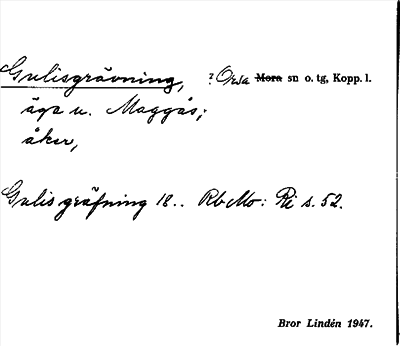 Gulisgrävning, ? Orsa ~~Mora~~ sn o. tg, Kopp. l.
äga u. Maggås;
åker,
Gulisgräfning 18.. RbMo: Ri s. 52.
Bror Lindén 1947.